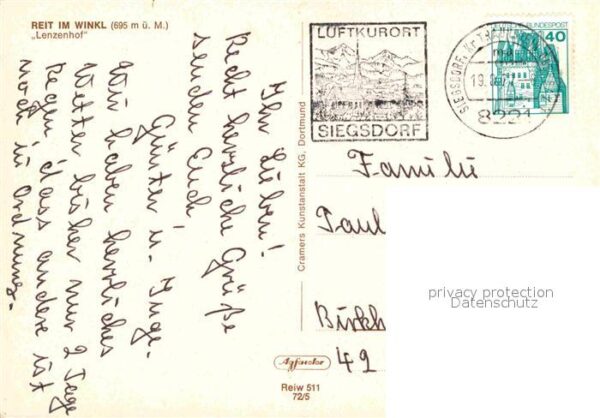 REIT IM WINKL (695 m ü. M.)
„Lenzenhof"
Ihr Lieben!
Recht herzliche Grüße
senden Euch
Günter u. Inge.
Wir haben herrliches
Wetter bisher nur 2 Tage
Regen, dass andere ist
noch in Ordnung.
Cramers Kunstanstalt KG, Dortmund
Reiw 511
72/5
LUFTKURORT
SIEGSDORF
SIEGSDORF, Kr
8221
DEUTSCHE BUNDESPOST
40
Familie
Paul
Birkh
49
privacy protection
Datenschutz